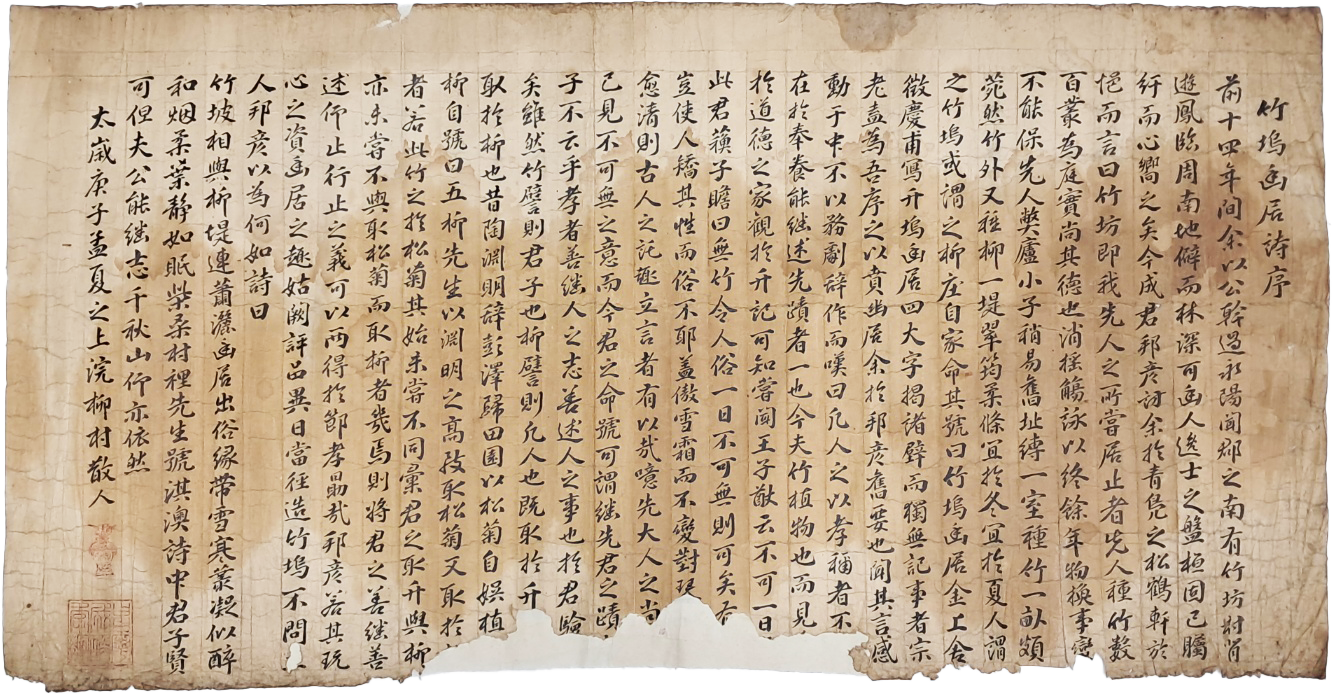 竹塢幽居詩序
前十四年間余以公幹過永陽聞郡之南有竹坊村肯
遊鳳臨周南地僻而林深可幽人逸士之盤桓固已騰
紆而心嚮之矣今成君邦彦訪余於青鳧之松鶴軒於
悒而言曰竹坊即我先人之所嘗居止者先人種竹數
百叢為庭實尚其德也消搖觴詠以終餘年物換事變
不能保先人弊廬小子稍易舊址縛一室種竹一畝頗
菀然竹外又種柳一堤翠筠柔條宜於冬宜於夏人謂
之竹塢或謂之柳庄自家命其號曰竹塢幽居金上舍
徽慶甫寫竹塢幽居四大字揭諸壁而獨無記事者宗
老盍為吾序之以賁幽居余於邦彦舊要也聞其言感
動于中不以務劇辞作而嘆曰凡人之以孝稱者不
在於奉養能継述先蹟者一也今夫竹植物也而見
於道德之家觀於竹記可知嘗聞王子猷云不可一日
此君蘓子瞻曰無竹令人俗一日不可無則可矣
豈使人矯其性而俗不耶盖傲雪霜而不變對
愈清則古人之託趣立言者有以哉噫先大人之尚
已見不可無之意而今君之命號可謂継先君之蹟
子不云乎孝者善継人之志善述人之事也於君驗
矣雖然竹譬則君子也柳譬則凡人也既取於竹
取於柳也昔陶淵明辞彭澤歸田園以松菊自娯植
柳自號曰五柳先生以淵明之高致取松菊又取於
者若此竹之於松菊其始未嘗不同彙君之取竹與柳
亦未嘗不與取松菊而取柳者幾焉則將君之善継善
述仰止行止之義可以兩得於節孝勗哉邦彦若其玩
心之資幽居之趣姑闕評品異日當徑造竹塢不問
人邦彦以為何如詩曰
竹坡相與柳堤連蕭灑幽居出俗縁带雪寒叢凝似醉
和烟柔葉静如眠柴桑村裡先生號淇澳詩中君子賢
可但夫公能継志千秋山仰亦依然
太歲庚子孟夏之上浣柳村散人